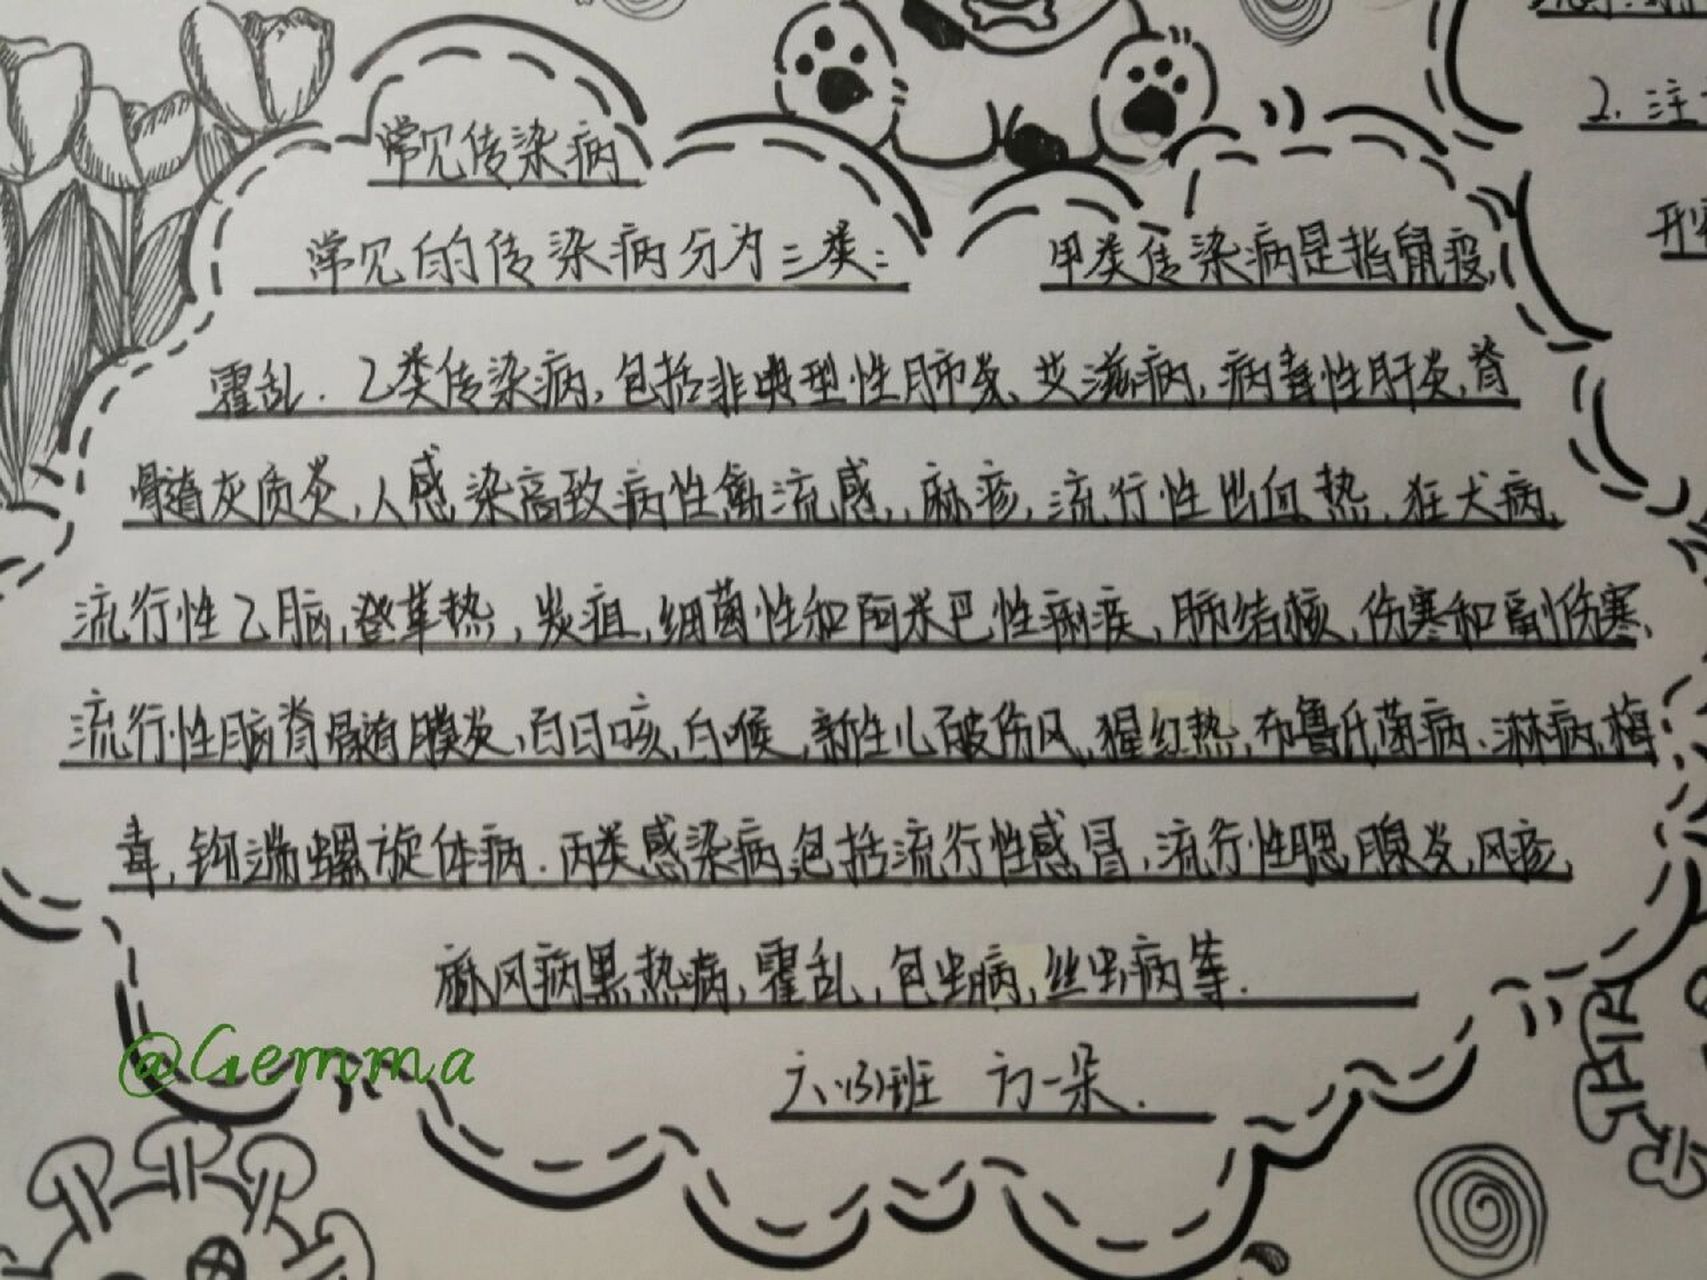 常见传染病
常见的传染病分为三类:
甲类传染病是指鼠疫,
霍乱. 乙类传染病, 包括非典型性肺炎、艾滋病, 病毒性肝炎, 脊
髓灰质炎, 人感染高致病性禽流感, 麻疹, 流行性出血热, 狂犬病,
流行性乙脑, 登革热, 炭疽, 细菌性和阿米巴性痢疾, 肺结核, 伤寒和副伤寒、
流行性脑脊髓膜炎, 百日咳, 白喉, 新生儿破伤风, 猩红热, 布鲁氏菌病、淋病, 梅
毒, 钩端螺旋体病. 丙类感染病, 包括流行性感冒, 流行性腮腺炎, 风疹,
麻风病黑热病, 霍乱, 包虫病, 丝虫病等.
六(3)班 方一朵.
@Gemma
2. 注